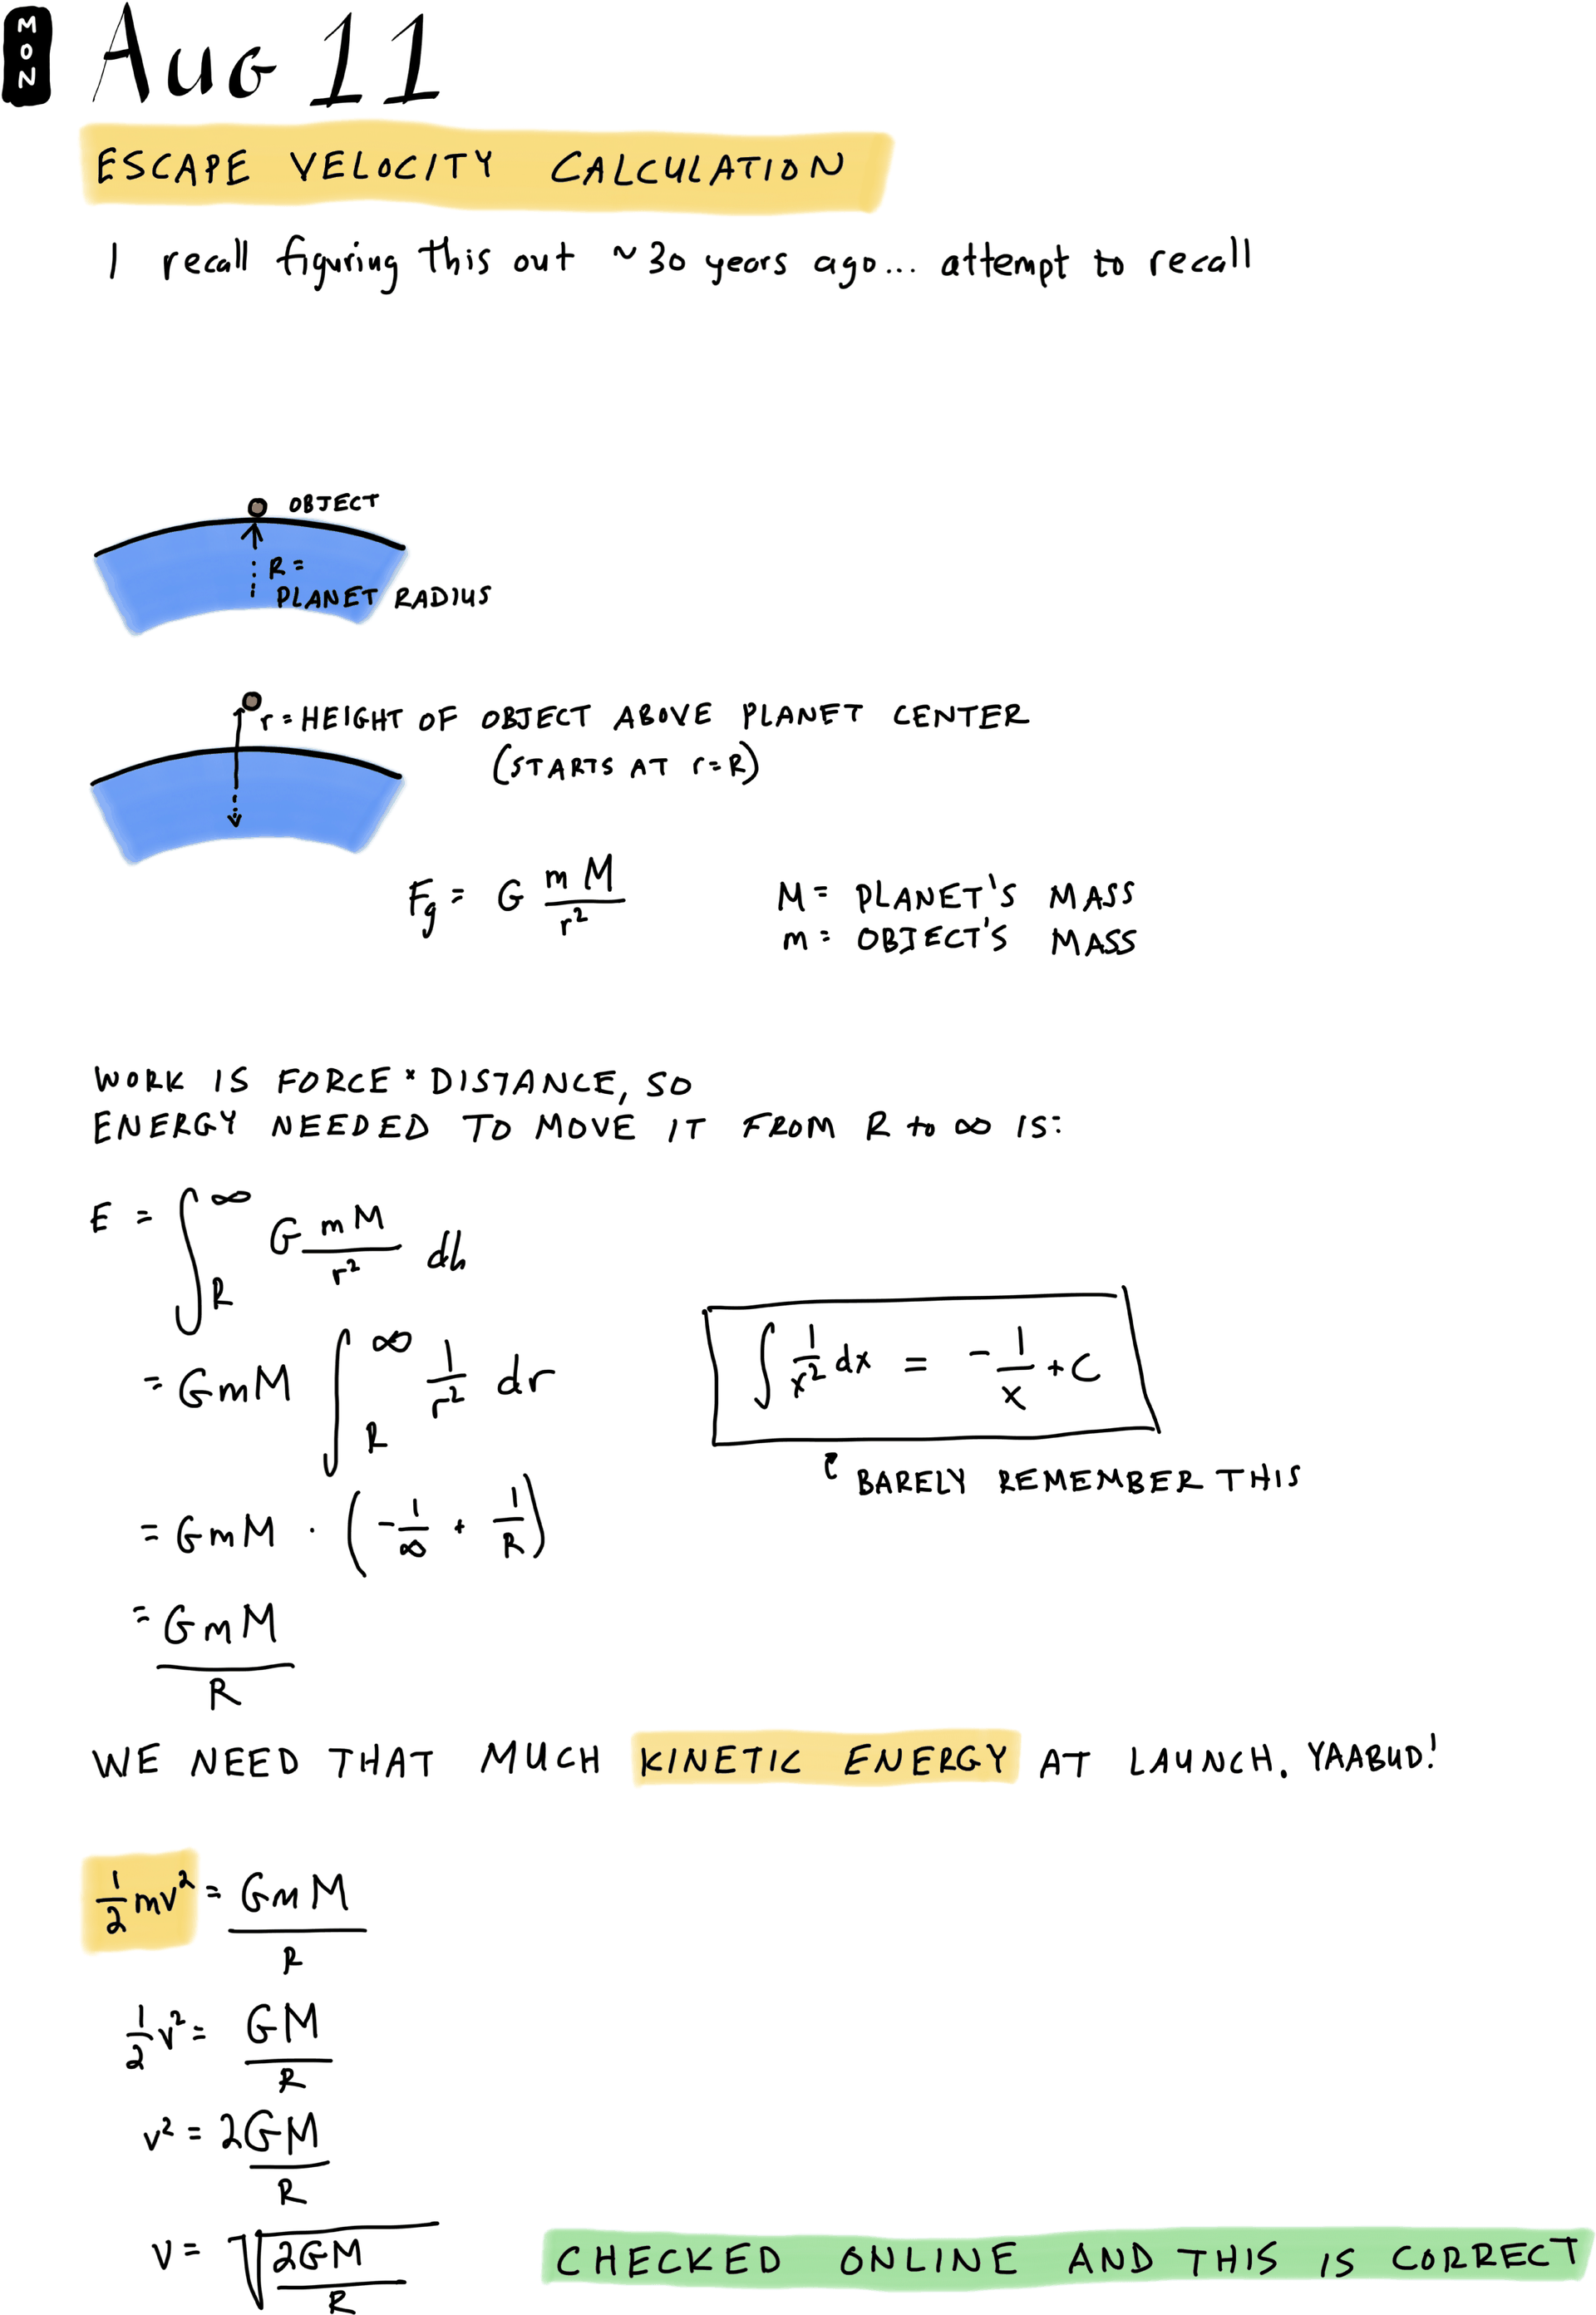 MON
Aug 11
ESCAPE VELOCITY CALCULATION
I recall figuring this out ~30 years ago... attempt to recall
OBJECT
R =
PLANET RADIUS
r = HEIGHT OF OBJECT ABOVE PLANET CENTER
(STARTS AT r=R)
F_g = G mM/r²
M = PLANET'S MASS
m = OBJECT'S MASS
WORK IS FORCE × DISTANCE, SO
ENERGY NEEDED TO MOVE IT FROM R to ∞ IS:
E = ∫_R^∞ G mM/r² dh
= GmM ∫_R^∞ 1/r² dr
∫ 1/x² dx = -1/x + C
BARELY REMEMBER THIS
= GmM · (-1/∞ + 1/R)
= GmM/R
WE NEED THAT MUCH KINETIC ENERGY AT LAUNCH. YAABUD!
1/2 mv² = GmM/R
1/2 v² = GM/R
v² = 2GM/R
v = √(2GM/R)
CHECKED ONLINE AND THIS IS CORRECT